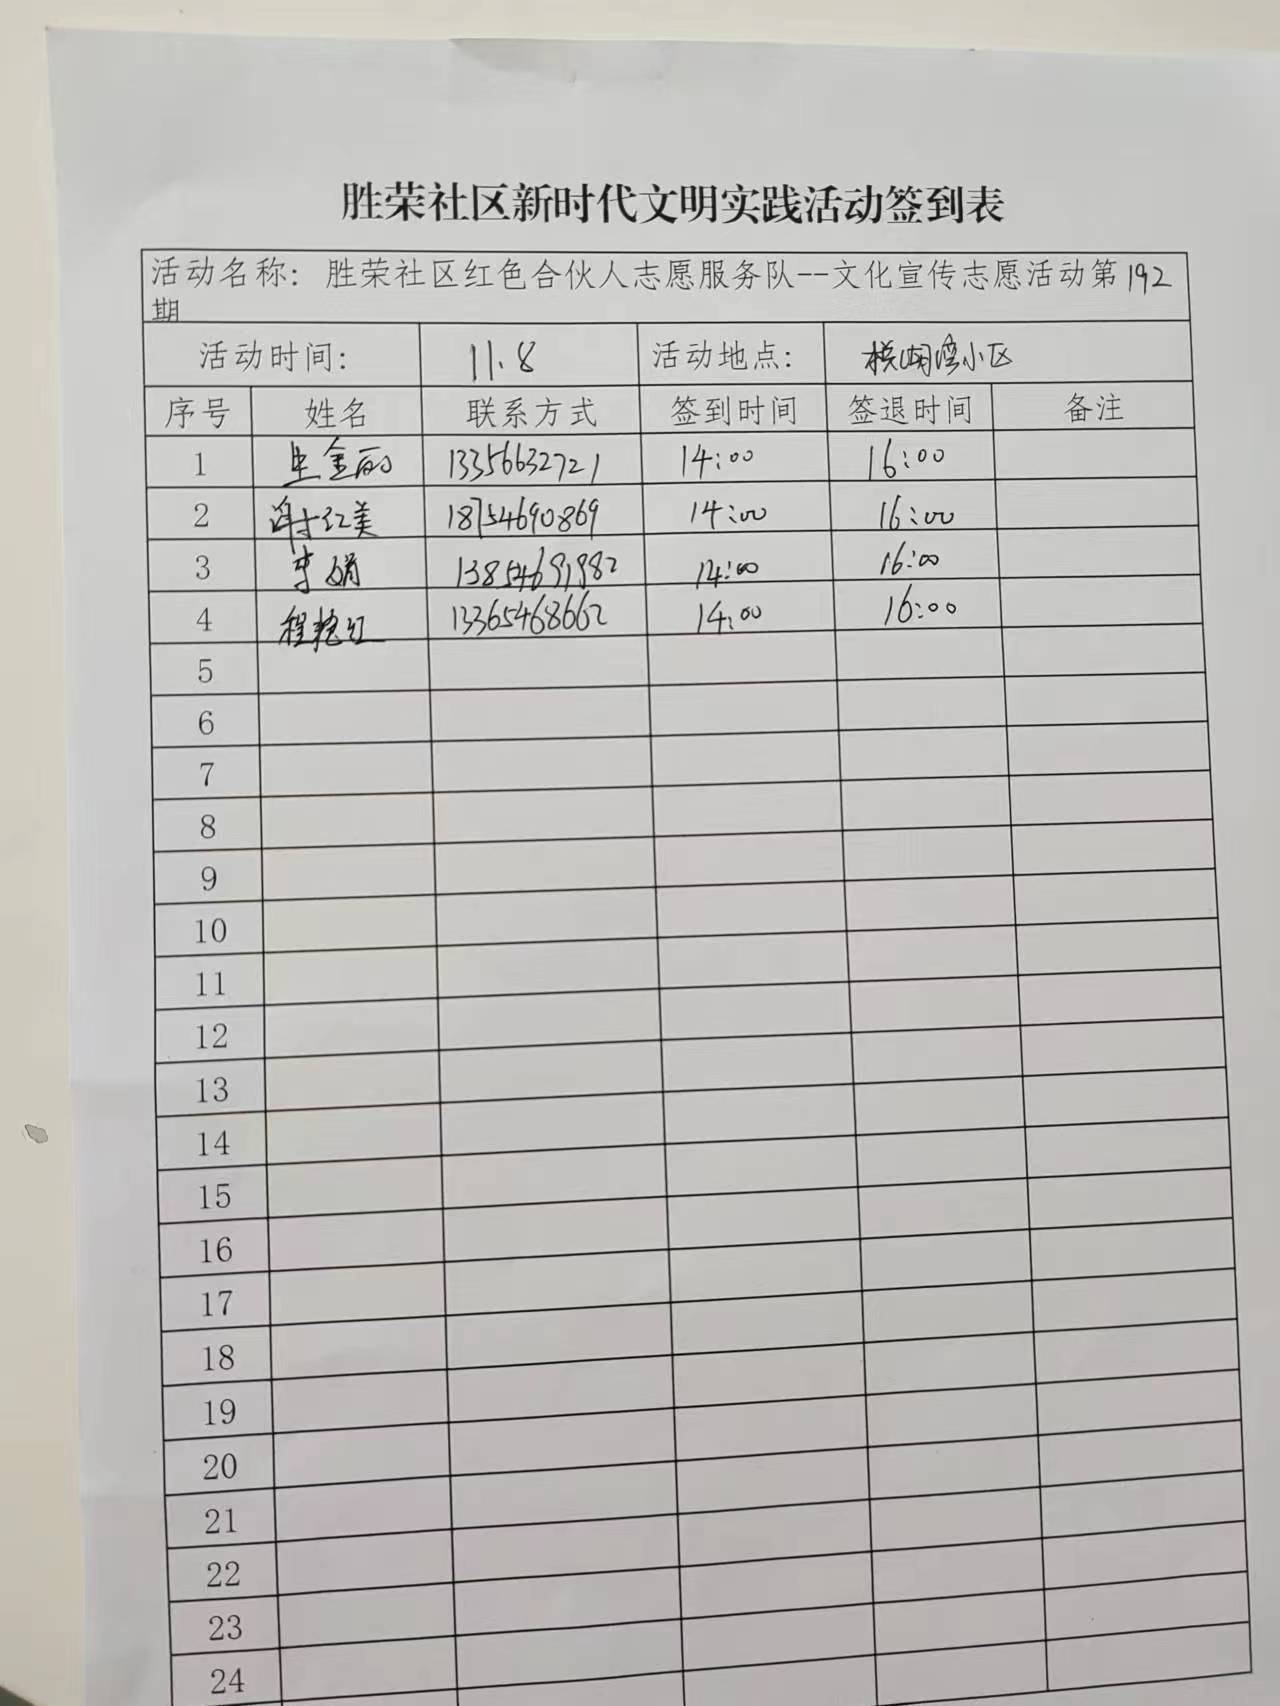 胜荣社区新时代文明实践活动签到表
活动名称：胜荣社区红色合伙人志愿服务队--文化宣传志愿活动第192
期
活动时间： 11.8 活动地点： 小区
序号 姓名 联系方式 签到时间 签退时间 备注
1 金丽 13356632721 14:00 16:00
2 谢红美 18754690869 14:00 16:00
3 李娟 13854691982 14:00 16:00
4 程艳红 13365468662 14:00 16:00
5
6
7
8
9
10
11
12
13
14
15
16
17
18
19
20
21
22
23
24